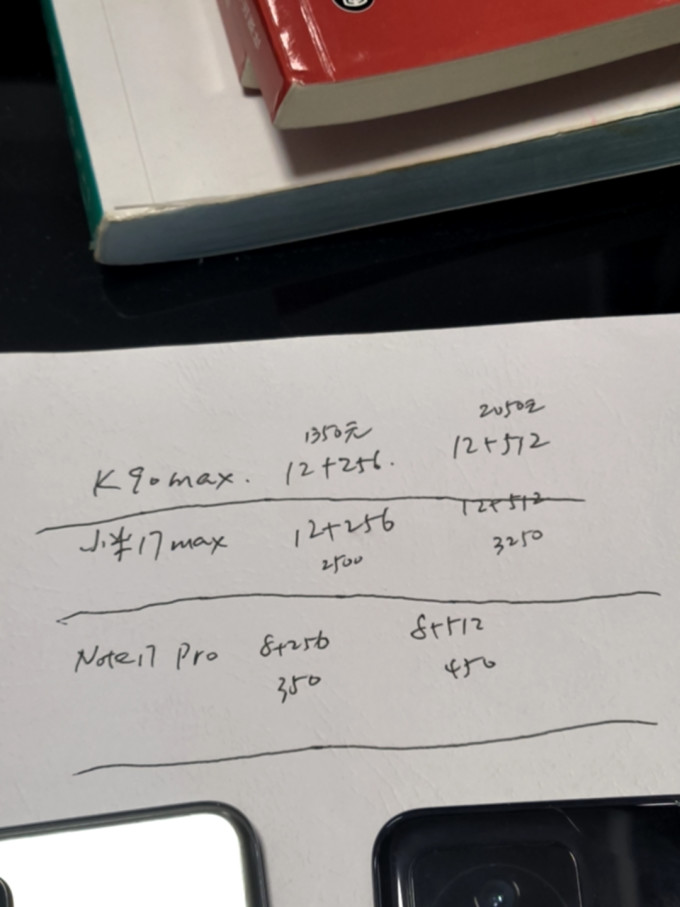 1350元 2050元
K90max. 12+256. 12+512
小米17max 12+256 12+512
2500 3250
Note17 Pro 8+256 8+512
350 450